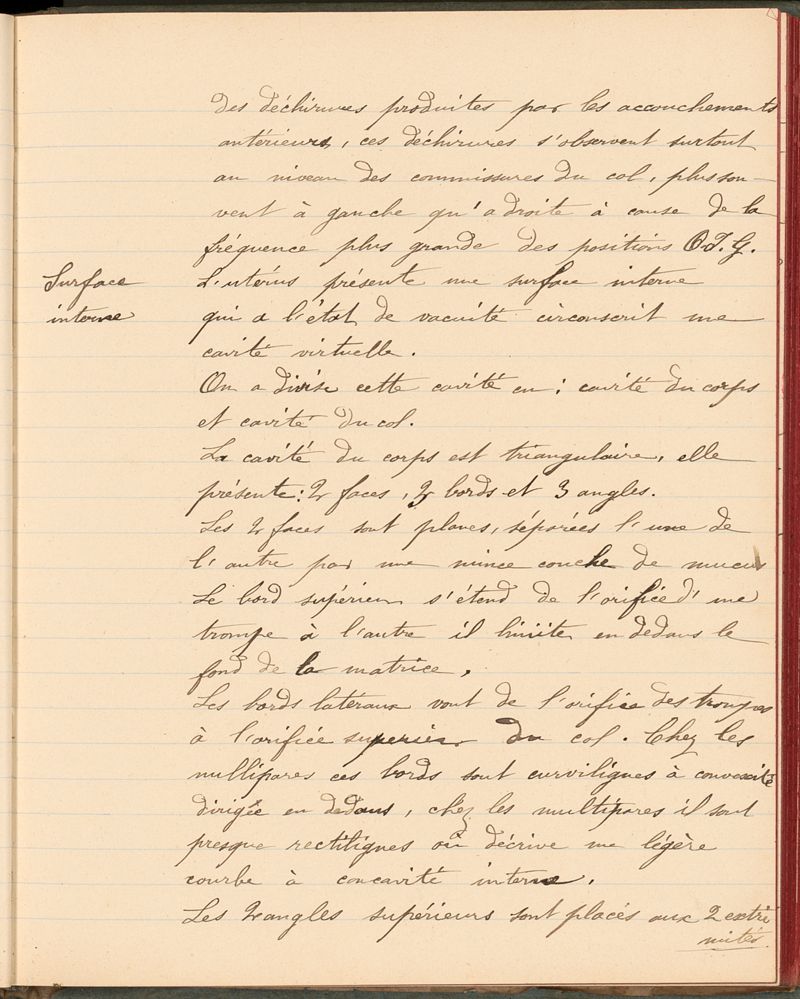 des déchirures produites par les accouchements
antérieurs, ces déchirures s'observent surtout
au niveau des commissures du col, plus sou-
vent à gauche qu'a droite à cause de la
fréquence plus grande des positions O.I.G.
Surface
interne
L'utérus présente une surface interne
qui a l'état de vacuité circonscrit une
cavité virtuelle.
On a divisé cette cavité en : cavité du corps
et cavité du col.
La cavité du corps est triangulaire, elle
présente: 2 faces, 3 bords et 3 angles.
Les 2 faces sont planes, séparées l'une de
l'autre par une mince couche de mucus
Le bord supérieur s'étend de l'orifice d'une
trompe à l'autre il limite en dedans le
fond de la matrice.
Les bords latéraux vont de l'orifice des trompes
à l'orifice superieur du col. Chez les
nullipares ces bords sont curvilignes à convexité
dirigée en dedans, chez les multipares il sont
presque rectilignes ou décrive une légère
courbe à concavité interne.
Les 2 angles supérieurs sont placés aux 2 extré
mités.